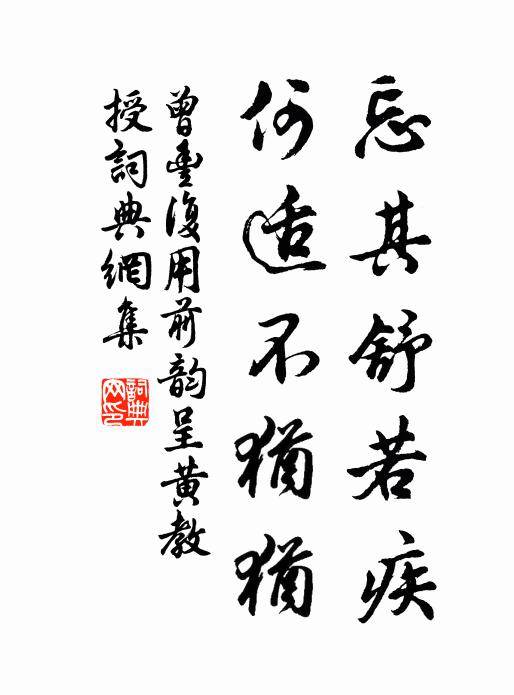 忘其舒若疾
何适不猶猶
曾豊復用前韵呈黄教
授詞典網集
詞典网印